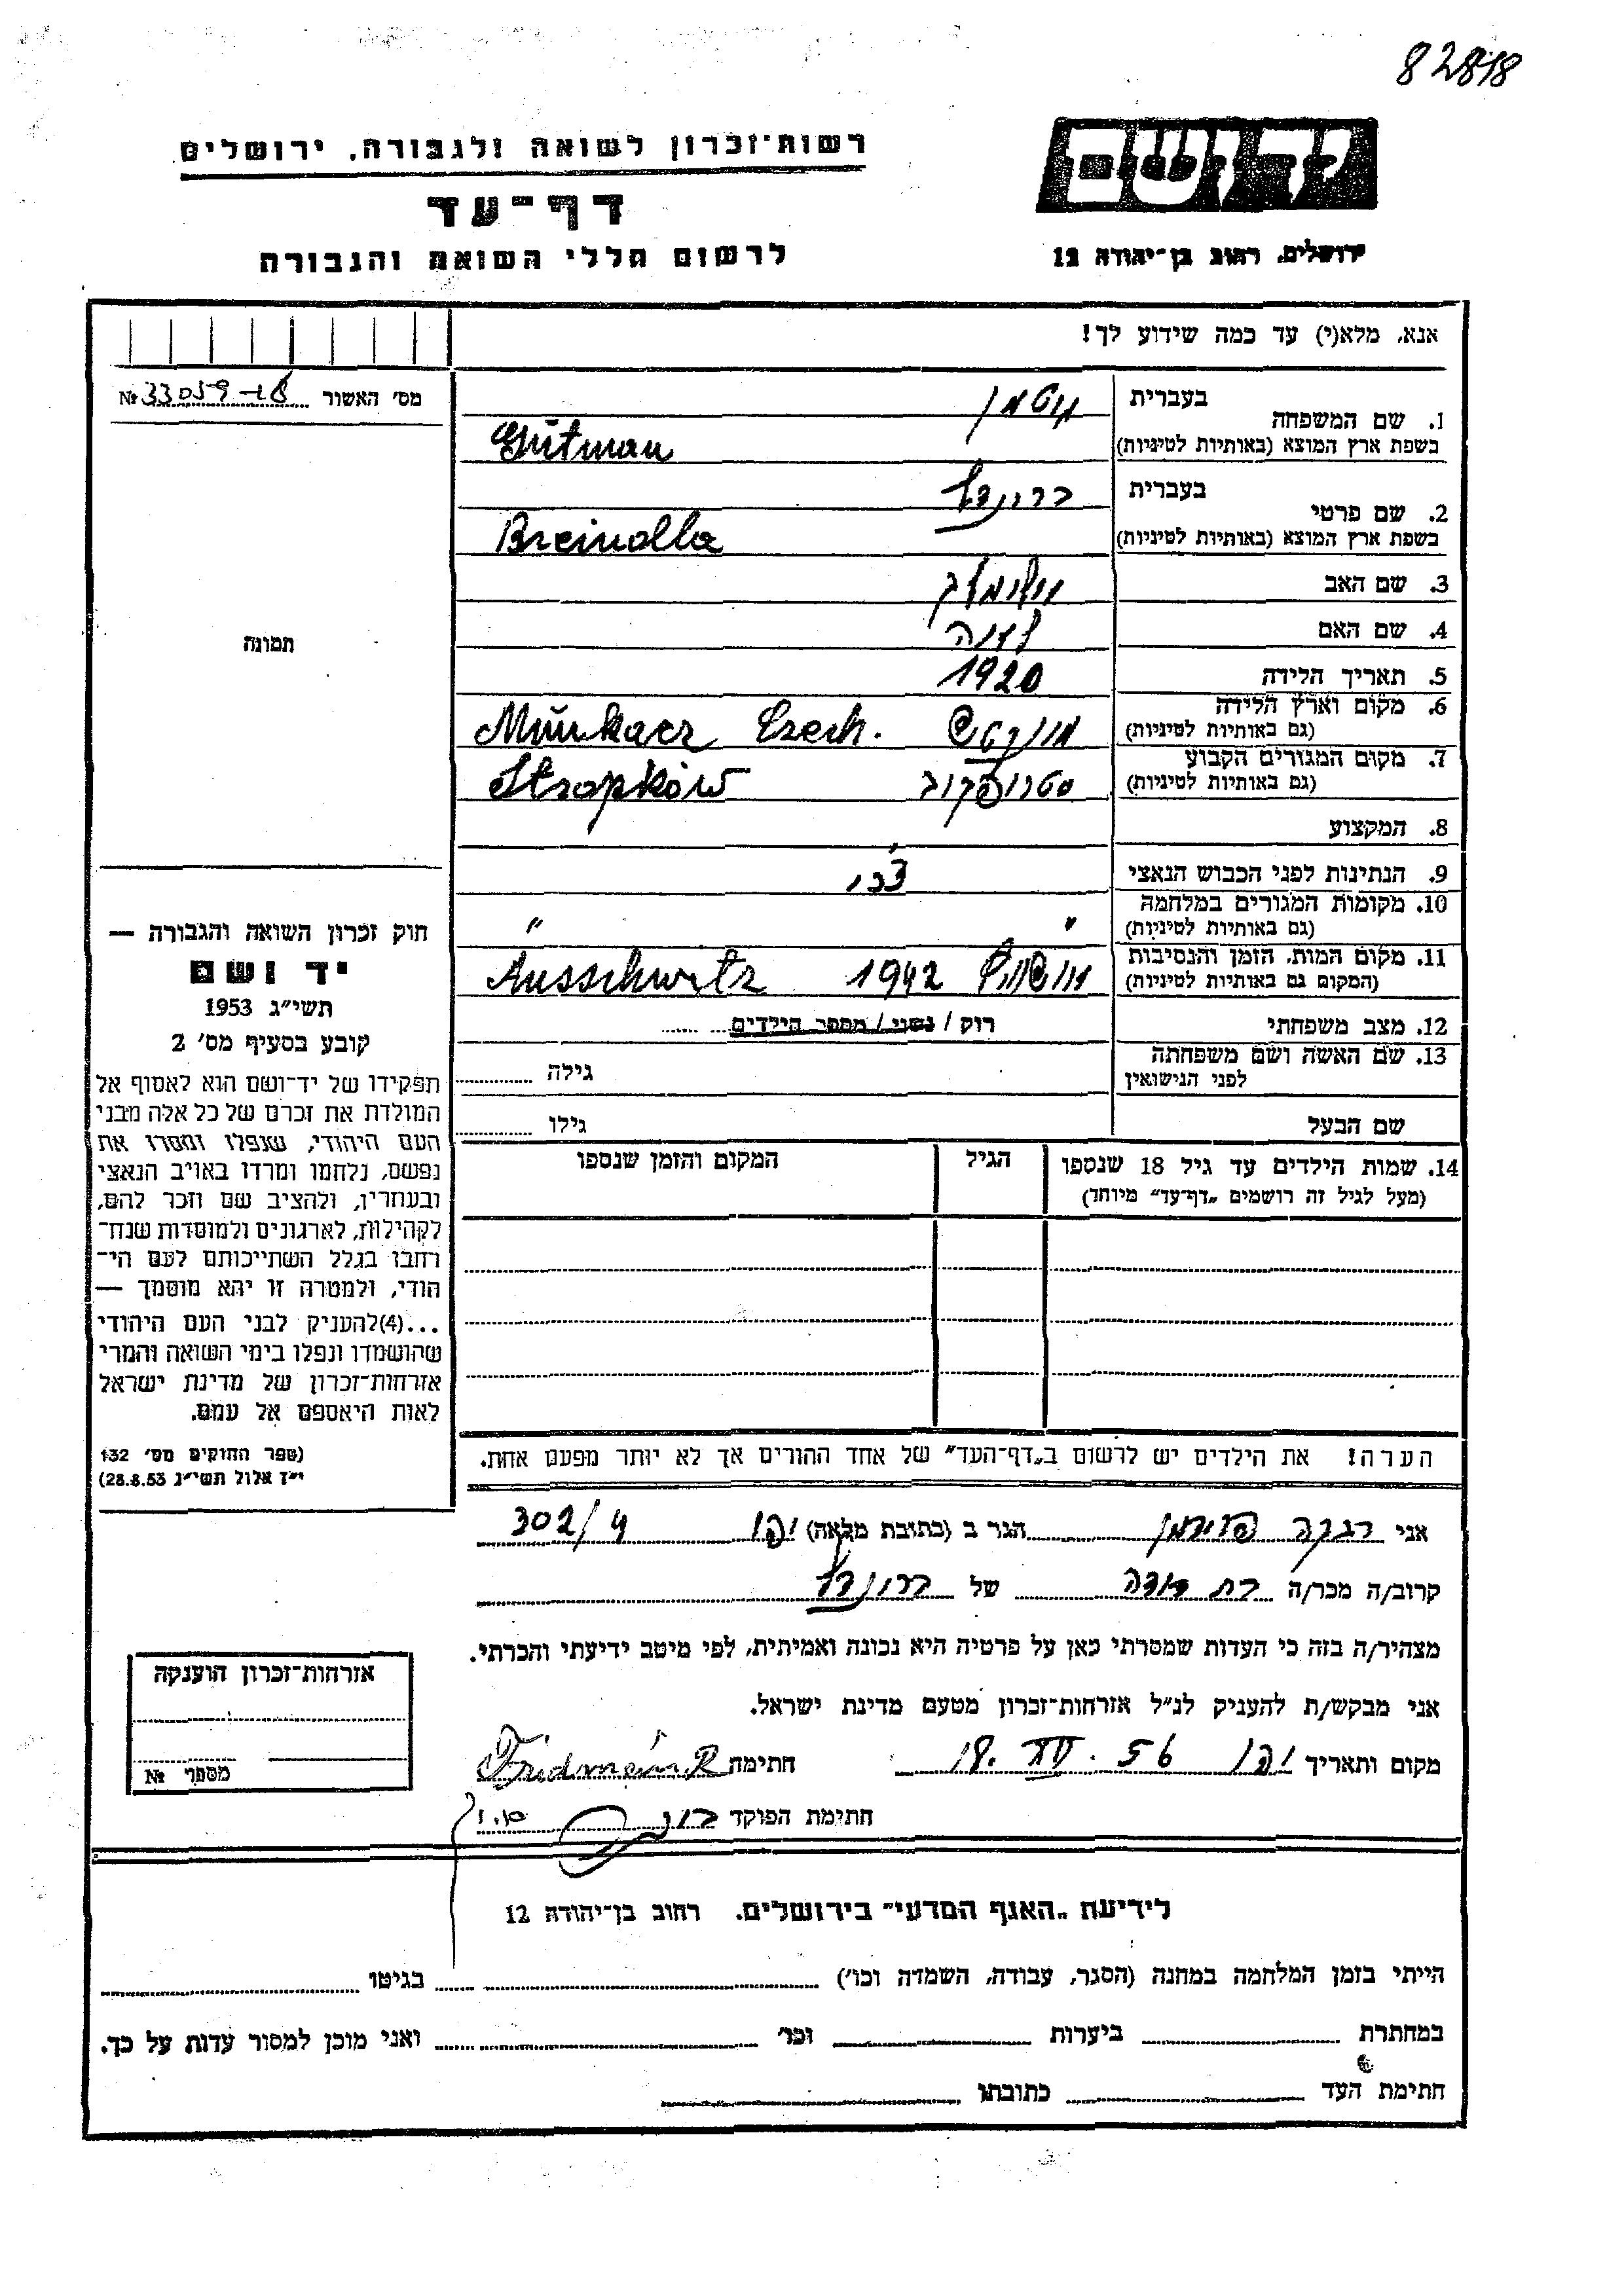 82818
רשות־זכרון לשואה ולגבורה, ירושלים
יד ושם
דף־עד
לרשום חללי השואה והגבורה
ירושלים, רחוב בן־יהודה 12
אנא, מלא(י) עד כמה שידוע לך!
מס׳ האשור № 33059
1. שם המשפחה
בעברית גוטמן
בשפת ארץ המוצא (באותיות לטיניות) Gutman
2. שם פרטי
בעברית ברינדל
בשפת ארץ המוצא (באותיות לטיניות) Breindla
3. שם האב
4. שם האם
5. תאריך הלידה 1920
6. מקום וארץ הלידה
(גם באותיות לטיניות) מונקטש Munkacz Czech.
7. מקום המגורים הקבוע
(גם באותיות לטיניות) סטרופקוב Stropków
8. המקצוע
9. הנתינות לפני הכבוש הנאצי צ׳כי
10. מקומות המגורים במלחמה
(גם באותיות לטיניות) " "
11. מקום המות, הזמן והנסיבות
(המקום גם באותיות לטיניות) אושוויץ 1942 Ausschwitz
12. מצב משפחתי רווק / נשוי / מספר הילדים
13. שם האשה ושם משפחתה
לפני הנישואין גילה
שם הבעל גילו
14. שמות הילדים עד גיל 18 שנספו הגיל המקום והזמן שנספו
(מעל לגיל זה רושמים „דף־עד״ מיוחד)
הערה! את הילדים יש לרשום ב„דף־העד״ של אחד ההורים אך לא יותר מפעם אחת.
תמונה
חוק זכרון השואה והגבורה —
יד ושם
תשי״ג 1953
קובע בסעיף מס׳ 2
תפקידו של יד־ושם הוא לאסוף אל
המולדת את זכרם של כל אלה מבני
העם היהודי, שנפלו ומסרו את
נפשם, נלחמו ומרדו באויב הנאצי
ובעוזריו, ולהציב שם וזכר להם,
לקהילות, לארגונים ולמוסדות שנח־
רבו בגלל השתייכותם לעם הי־
הודי, ולמטרה זו יהא מוסמך —
...(4) להעניק לבני העם היהודי
שהושמדו ונפלו בימי השואה והמרי
אזרחות־זכרון של מדינת ישראל
לאות היאספם אל עמם.
(ספר החוקים מס׳ 132
י״ז אלול תשי״ג 28.8.53)
אני רבקה פרידמן הגר ב (כתובת מלאה) יפו 302/4
קרוב/ה מכר/ה בת דודה של ברינדל
מצהיר/ה בזה כי העדות שמסרתי כאן על פרטיה היא נכונה ואמיתית, לפי מיטב ידיעתי והכרתי.
אני מבקש/ת להעניק לנ״ל אזרחות־זכרון מטעם מדינת ישראל.
מקום ותאריך יפו 56 חתימה Fridman R
חתימת הפוקד
אזרחות־זכרון הוענקה
מספר №
לידיעת „האגף המדעי״ בירושלים, רחוב בן־יהודה 12
הייתי בזמן המלחמה במחנה (הסגר, עבודה, השמדה וכו׳) בגיטו
במחתרת ביערות וכו׳ ואני מוכן למסור עדות על כך.
חתימת העד כתובתו